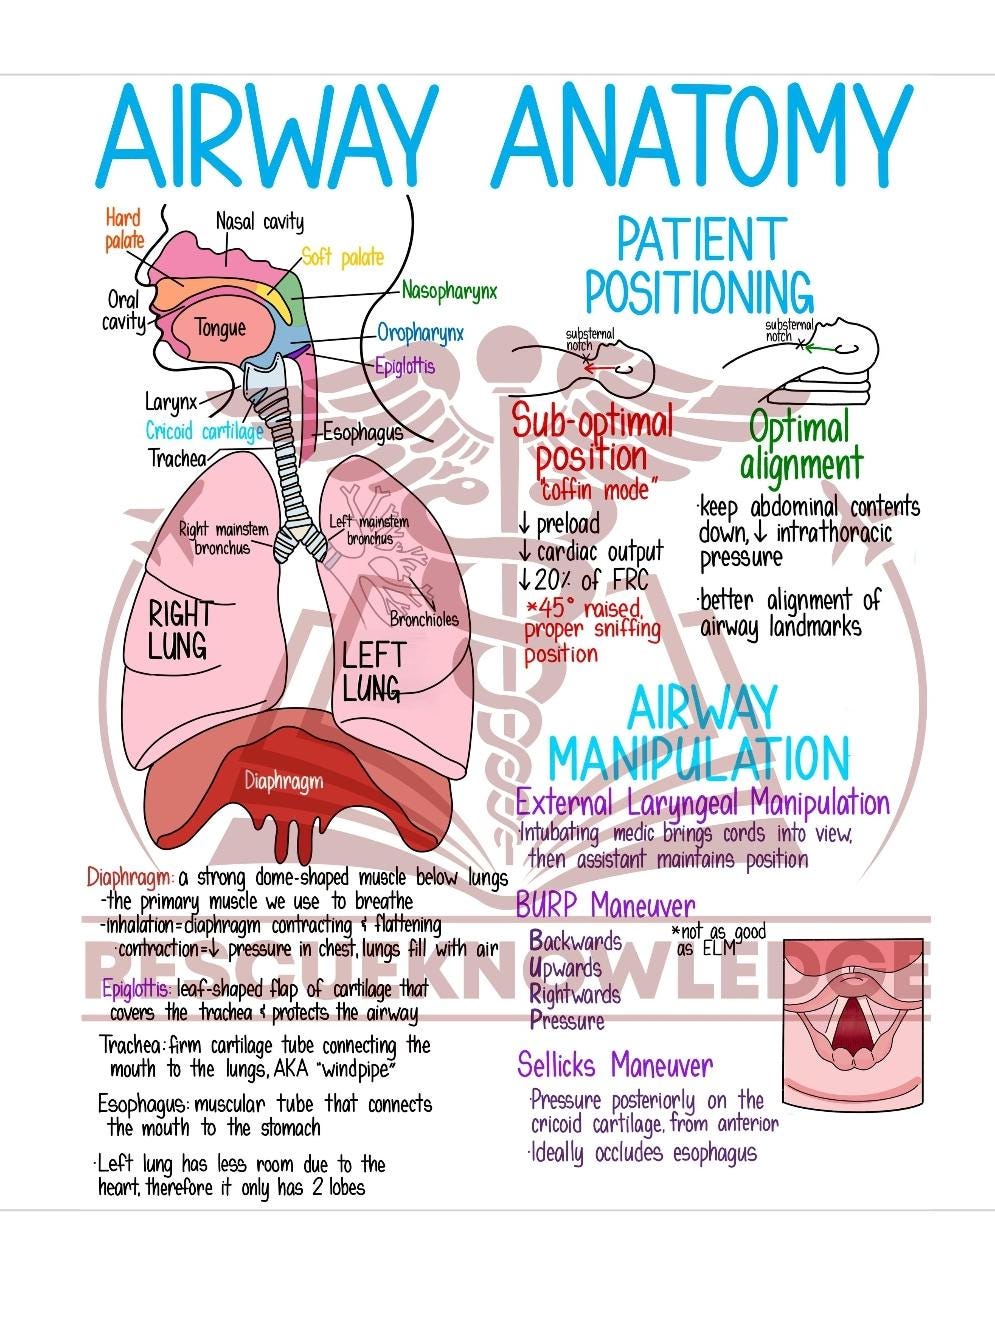 AIRWAY ANATOMY
Hard
palate
Nasal cavity
Soft palate
Nasopharynx
Oral
cavity
Tongue
Oropharynx
Epiglottis
Larynx
Cricoid cartilage
Esophagus
Trachea
Right mainstem
bronchus
Left mainstem
bronchus
Bronchioles
RIGHT
LUNG
LEFT
LUNG
Diaphragm
Diaphragm: a strong dome-shaped muscle below lungs
-the primary muscle we use to breathe
-inhalation=diaphragm contracting & flattening
·contraction=↓ pressure in chest, lungs fill with air
Epiglottis: leaf-shaped flap of cartilage that
covers the trachea & protects the airway
Trachea: firm cartilage tube connecting the
mouth to the lungs, AKA "windpipe"
Esophagus: muscular tube that connects
the mouth to the stomach
·Left lung has less room due to the
heart, therefore it only has 2 lobes
PATIENT
POSITIONING
substernal
notch
Sub-optimal
position
"coffin mode"
↓ preload
↓ cardiac output
↓20% of FRC
*45° raised,
proper sniffing
position
substernal
notch
Optimal
alignment
·keep abdominal contents
down, ↓ intrathoracic
pressure
·better alignment of
airway landmarks
AIRWAY
MANIPULATION
External Laryngeal Manipulation
·Intubating medic brings cords into view,
then assistant maintains position
BURP Maneuver
Backwards
Upwards
Rightwards
Pressure
*not as good
as ELM
Sellicks Maneuver
·Pressure posteriorly on the
cricoid cartilage, from anterior
·Ideally occludes esophagus
RESCUEKNOWLEDGE